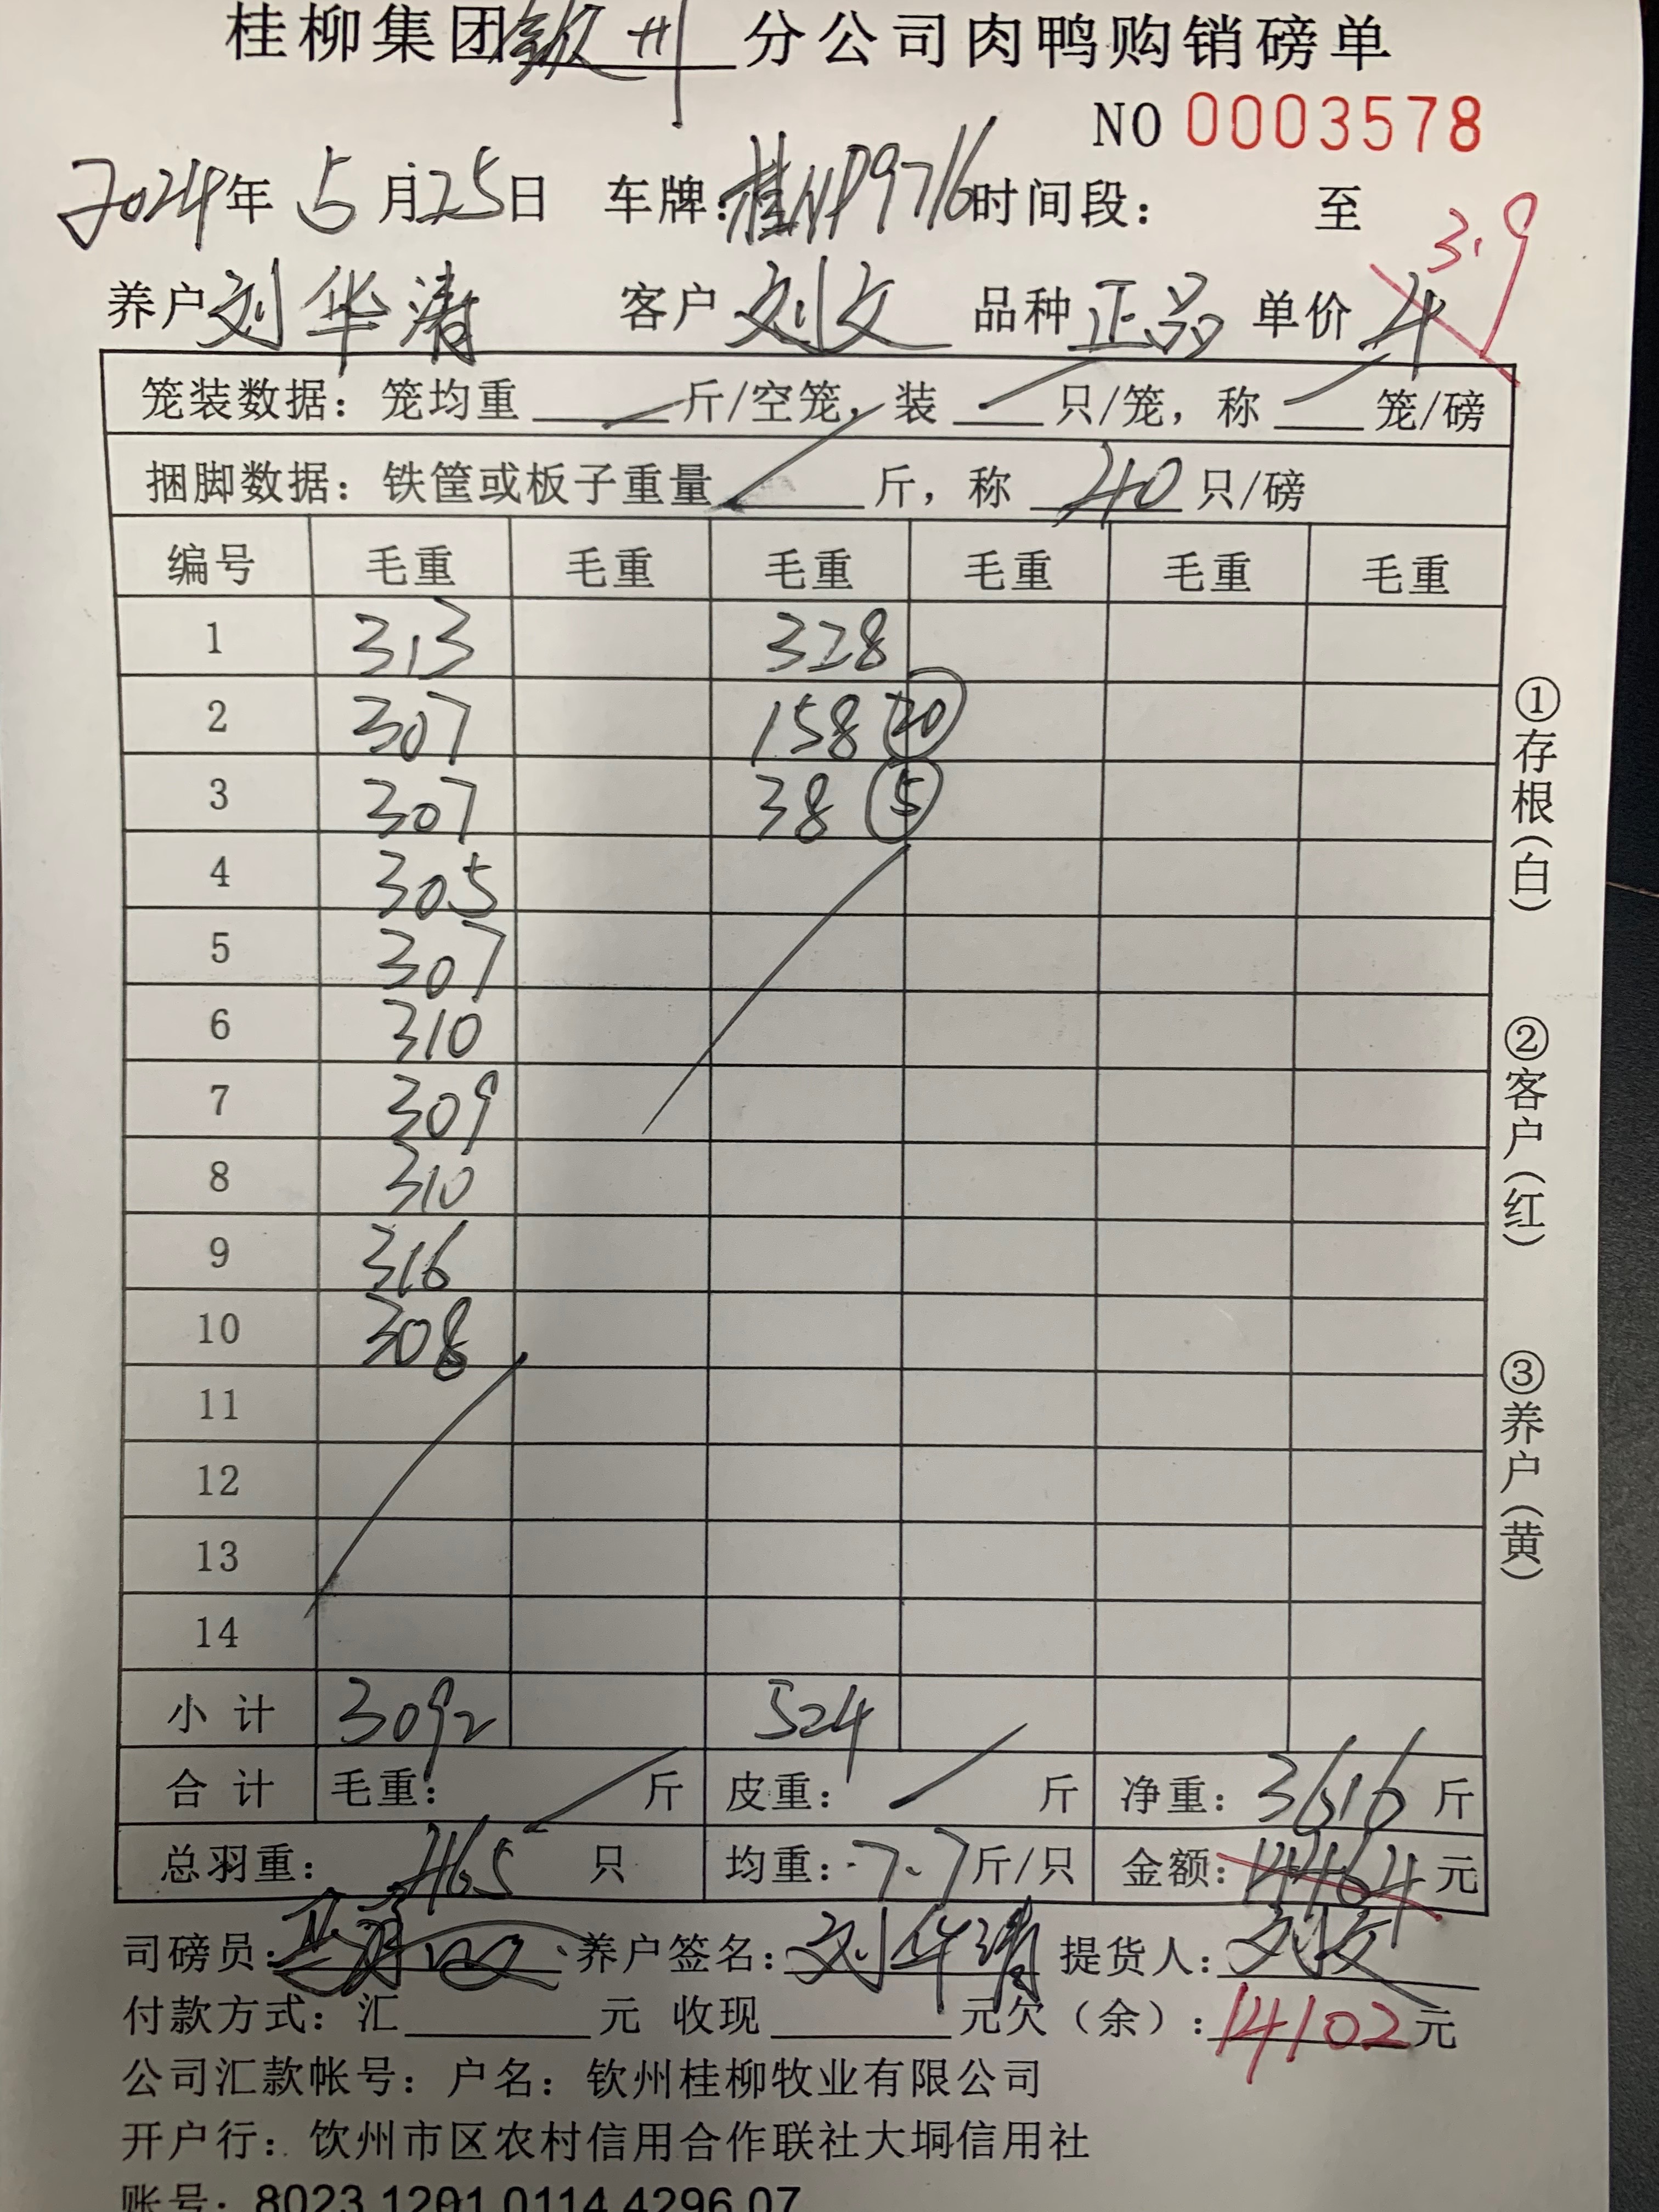 桂柳集团钦州分公司肉鸭购销磅单
NO 0003578
2024年5月25日 车牌:桂NP9716时间段: 至
3.9
养户刘华清 客户刘文 品种正品 单价4
笼装数据:笼均重____斤/空笼,装___只/笼,称___笼/磅
捆脚数据:铁筐或板子重量____斤,称40只/磅
编号 毛重 毛重 毛重 毛重 毛重 毛重
1 313 328
2 307 158 20
3 307 38 5
4 305
5 307
6 310
7 309
8 310
9 316
10 308
11
12
13
14
小计 3092 524
合计 毛重: 斤 皮重: 斤 净重:3616斤
总羽重:465只 均重:7.7斤/只 金额:14464元
司磅员: 养户签名:刘华清 提货人:刘文
付款方式:汇____元 收现____元欠(余):14102元
公司汇款帐号:户名:钦州桂柳牧业有限公司
开户行:钦州市区农村信用合作联社大垌信用社
账号:8023 1201 0114 4296 07
①存根(白)
②客户(红)
③养户(黄)